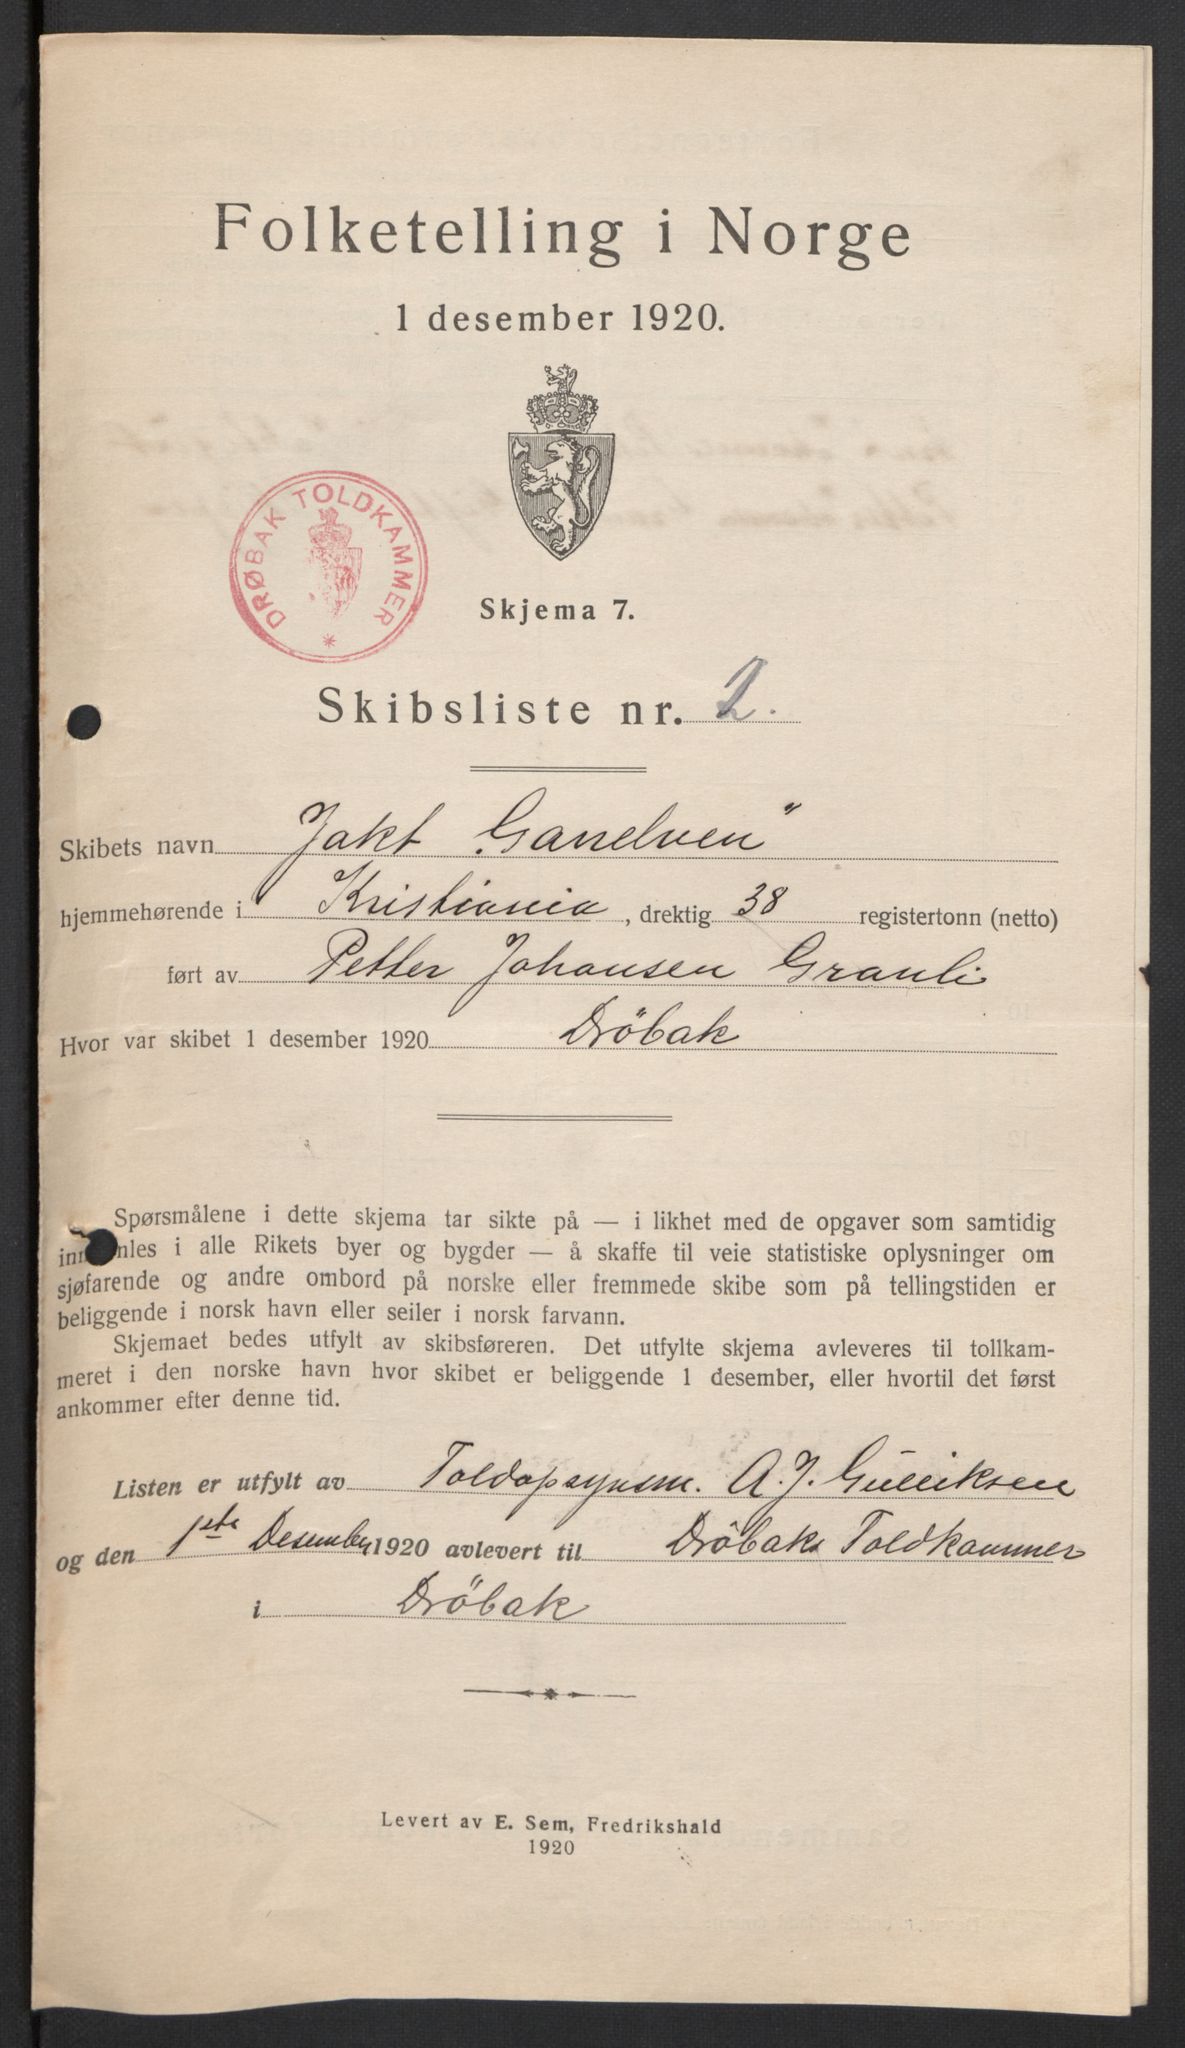 Folketelling i Norge
1 desember 1920.
DRØBAK TOLDKAMMER
Skjema 7.
Skibsliste nr. 2.
Skibets navn Jakt „Ganelven"
hjemmehørende i Kristiania, drektig 38 registertonn (netto)
ført av Petter Johansen Granli
Hvor var skibet 1 desember 1920 Dröbak
Spørsmålene i dette skjema tar sikte på — i likhet med de opgaver som samtidig
inn nles i alle Rikets byer og bygder — å skaffe til veie statistiske oplysninger om
sjøfarende og andre ombord på norske eller fremmede skibe som på tellingstiden er
beliggende i norsk havn eller seiler i norsk farvann.
Skjemaet bedes utfylt av skibsføreren. Det utfylte skjema avleveres til tollkam-
meret i den norske havn hvor skibet er beliggende 1 desember, eller hvortil det først
ankommer efter denne tid.
Listen er utfylt av Toldopsynsm. A. J. Gulliksen
og den 1ste Desember 1920 avlevert til Dröbaks Toldkammer
i Dröbak
Levert av E. Sem, Fredrikshald
1920